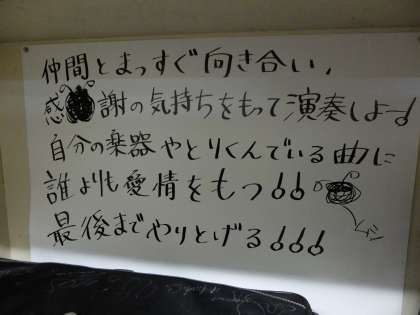 仲間とまっすぐ向き合い、
感謝の気持ちをもって演奏しよー!
自分の楽器やとりくんでいる曲に
誰よりも愛情をもつ!!
最後までやりとげる!!!